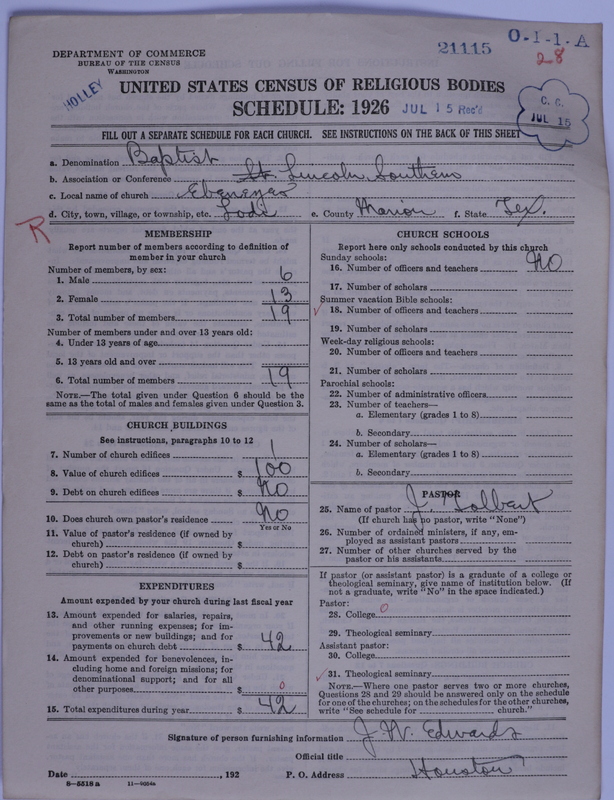 21115 O-1-1-A
28
DEPARTMENT OF COMMERCE
BUREAU OF THE CENSUS
WASHINGTON
HOLLEY
UNITED STATES CENSUS OF RELIGIOUS BODIES
SCHEDULE: 1926 JUL 15 Rec'd
C. C.
JUL 15
FILL OUT A SEPARATE SCHEDULE FOR EACH CHURCH. SEE INSTRUCTIONS ON THE BACK OF THIS SHEET
a. Denomination Baptist
b. Association or Conference St. Lincoln Southern
c. Local name of church Ebenezer
d. City, town, village, or township, etc. Lodi e. County Marion f. State Tex.
R
MEMBERSHIP
Report number of members according to definition of
member in your church
Number of members, by sex:
1. Male 6
2. Female 13
3. Total number of members 19
Number of members under and over 13 years old:
4. Under 13 years of age
5. 13 years old and over
6. Total number of members 19
NOTE.—The total given under Question 6 should be the
same as the total of males and females given under Question 3.
CHURCH BUILDINGS
See instructions, paragraphs 10 to 12
7. Number of church edifices 1
8. Value of church edifices $ 100
9. Debt on church edifices $ No
10. Does church own pastor's residence No
Yes or No
11. Value of pastor's residence (if owned by
church) $
12. Debt on pastor's residence (if owned by
church) $
EXPENDITURES
Amount expended by your church during last fiscal year
13. Amount expended for salaries, repairs,
and other running expenses; for im-
provements or new buildings; and for
payments on church debt $ 42
14. Amount expended for benevolences, in-
cluding home and foreign missions; for
denominational support; and for all
other purposes $ 0
15. Total expenditures during year $ 42
CHURCH SCHOOLS
Report here only schools conducted by this church
Sunday schools:
16. Number of officers and teachers No
17. Number of scholars
Summer vacation Bible schools:
18. Number of officers and teachers
19. Number of scholars
Week-day religious schools:
20. Number of officers and teachers
21. Number of scholars
Parochial schools:
22. Number of administrative officers
23. Number of teachers—
a. Elementary (grades 1 to 8)
b. Secondary
24. Number of scholars—
a. Elementary (grades 1 to 8)
b. Secondary
PASTOR
25. Name of pastor J. Holbert
(If church has no pastor, write "None")
26. Number of ordained ministers, if any, em-
ployed as assistant pastors
27. Number of other churches served by the
pastor or his assistants
If pastor (or assistant pastor) is a graduate of a college or
theological seminary, give name of institution below. (If
not a graduate, write "No" in the space indicated.)
Pastor:
28. College 0
29. Theological seminary
Assistant pastor:
30. College
31. Theological seminary
NOTE.—Where one pastor serves two or more churches,
Questions 28 and 29 should be answered only on the schedule
for one of the churches; on the schedules for the other churches,
write "See schedule for church."
Signature of person furnishing information J. W. Edwards
Official title
Date , 192 P. O. Address Houston
8-5518a 11-9064a